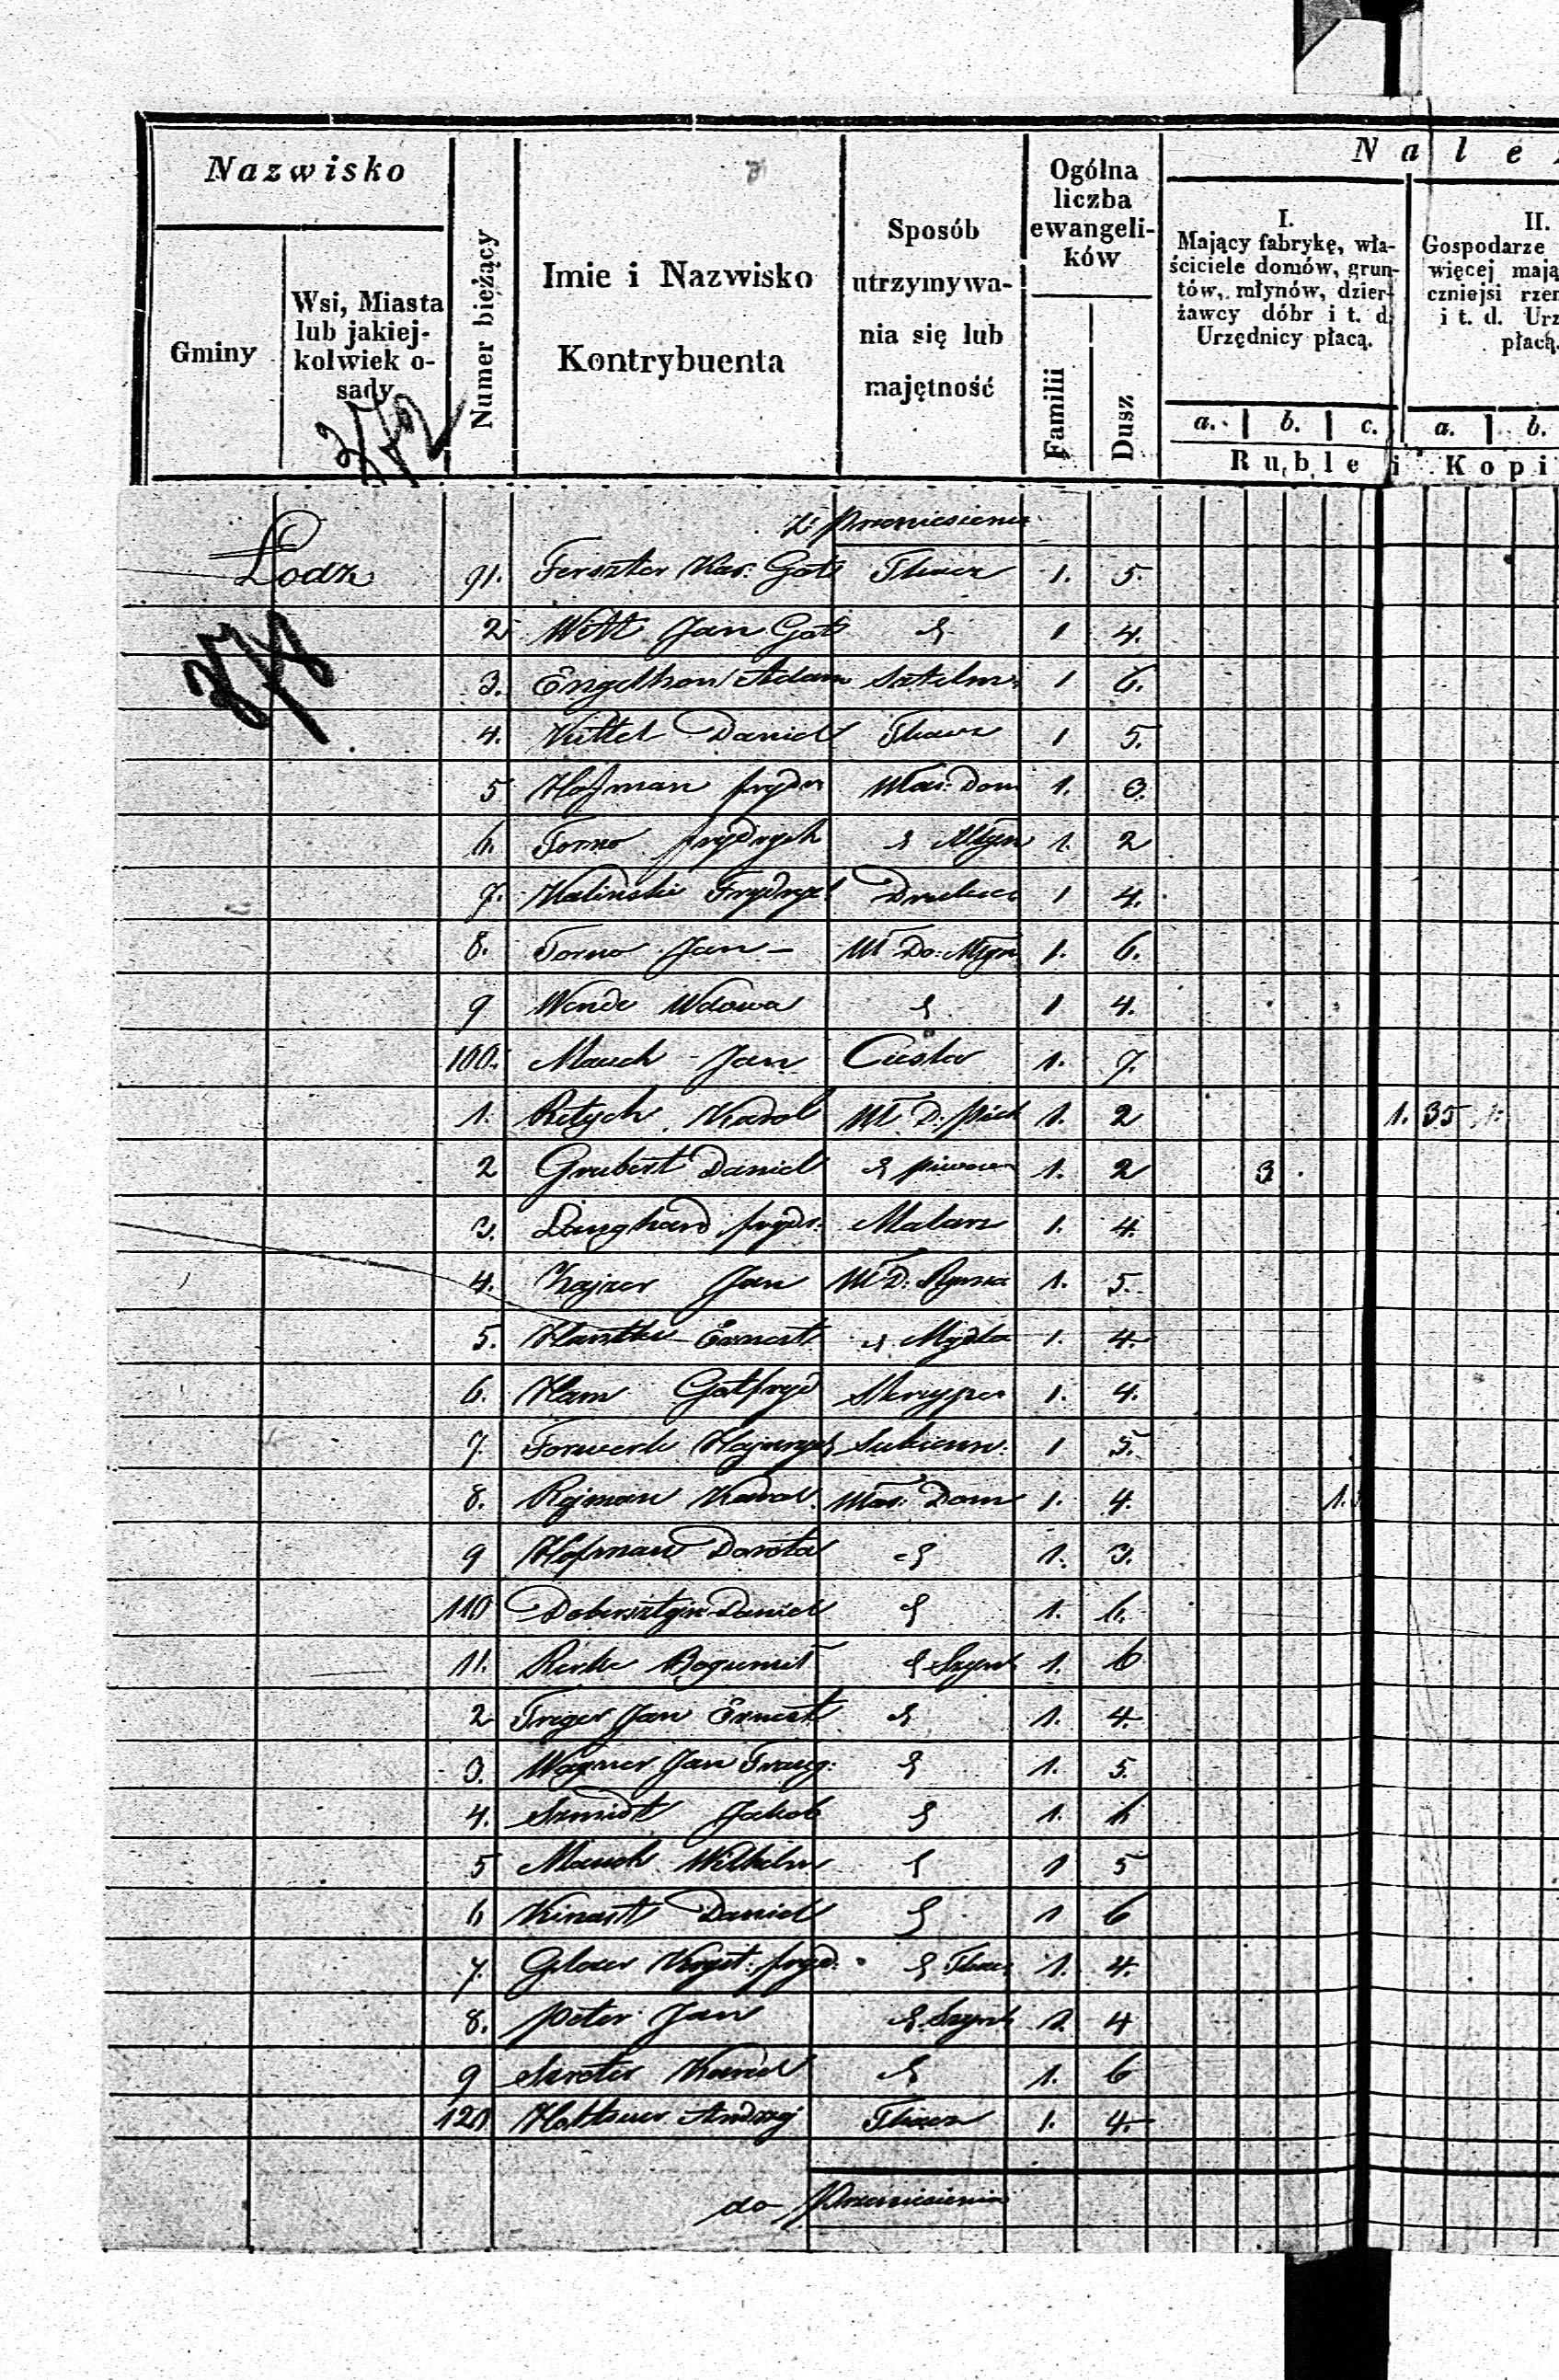 Nazwisko
Gminy
Wsi, Miasta
lub jakiej-
kolwiek o-
sady
Numer bieżący
Imie i Nazwisko
Kontrybuenta
Sposób
utrzymywa-
nia się lub
majętność
Ogólna
liczba
ewangeli-
ków
Familii
Dusz
N a l e
I.
Mający fabrykę, wła-
ściciele domów, grun-
tów, młynów, dzier-
żawcy dóbr i t. d.
Urzędnicy płacą.
II.
Gospodarze
więcej mają
czniejsi rzem
i t. d. Urz
płacą.
a. b. c. a. b.
Ruble i Kopi
Z Przeniesienia
Łodz 91. Ferszter Kar: Gotl Tkacz 1. 5.
2 Witt Jan Gotl 1 4.
3. Engelhon Adam Sztelm: 1 6.
4. Kittel Daniel Tkacz 1 5.
5 Hofman fryder Właś: Dom 1. 3.
6. Torno frydrych Młyn 1. 2
7. Kalinski Frydrych 1 4.
8. Torno Jan - Wł Do: Młyn 1. 6.
9 Wende Wdowa 1 4.
100. Mauch Jan Cieśla 1. 7.
1. Retych Karol Wł D: piek 1. 2 1. 35
2 Grubert Daniel piwowar 1. 2 3.
3. Langhard frydr. Malarz 1. 4.
4. Kajzer Jan Wł D: 1. 5.
5. Ernest Mydla 1. 4.
6. Ham Gotfryd 1. 4.
7. Forwerk Hajnrych Sukienn: 1 5.
8. Rejman Karol. Właś: Dom 1. 4. 1.
9 Hofman Dorota 1. 3.
110 Dobersztejn Daniel 1. 6.
11. Rinke Bogumił Szynk 1. 6
2 Treger Jan Ernest 1. 4.
3. Wagner Jan Traug: 1. 5.
4. Szmidt Jakob 1. 6
5 Mauch Wilhelm 1 5
6 Kinast Daniel 1 6
7. Kryst: fryd. Tkacz 1. 4.
8. Peter Jan Szynk 1. 4
9 Szreter Karol 1. 6
120 Andrzej Tkacz 1. 4.
do Przeniesienia